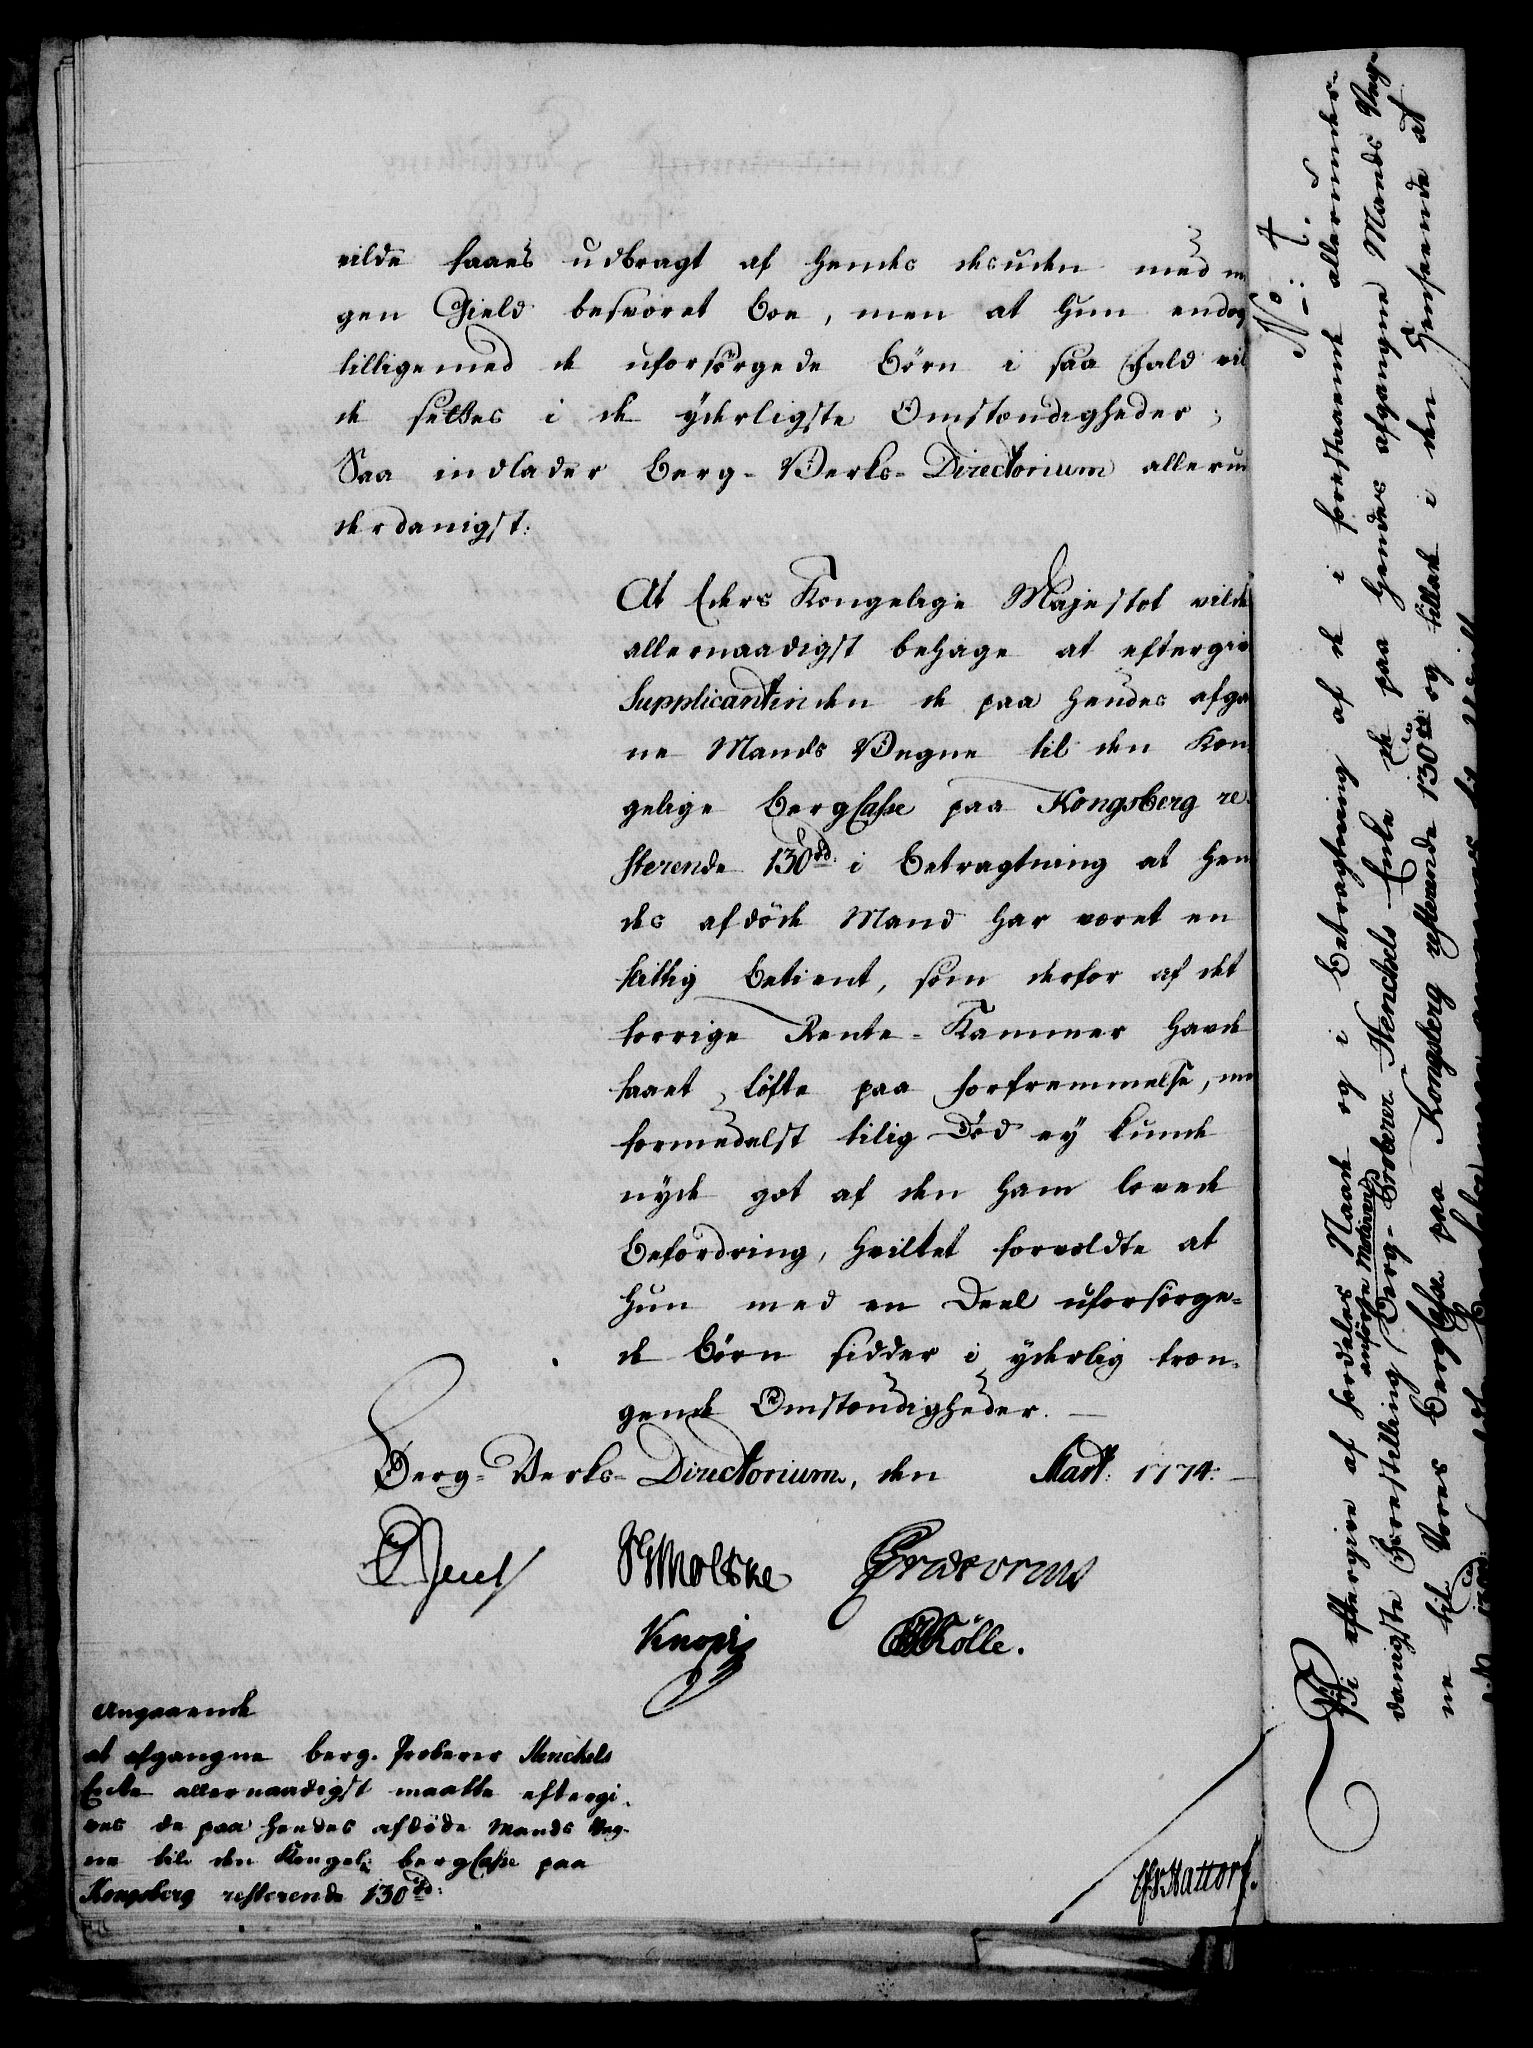 vilde faaes udbragt af hendes desuden med me
gen Gield besværet Boe, men at hun endog
tilligemed de uforsørgede Børn i saa Fald vil
de settes i de yderligste Omstændigheder;
Saa indlader Berg-Verks-Directorium allerun
derdanigst:
At Eders Kongelige Majestæt vilde
allernaadigst behage at eftergiv
Supplicantinden de paa hendes afga
ne Mands Vegne til den Kon-
gelige BergCasse paa Kongsberg re-
sterende 130 rd: i Betragtning at hen
des afdøde Mand har været en
habil Betient, som derfor af det
forrige Rente-Kammer havde
faaet Løfte paa Forfremmelse, men
formedelst tilig Død ey kunde
nyde got af den ham lovede
Befordring, hvilket forvoldte at
hun med en Deel uforsørge-
de Børn sidder i yderlig træn-
gende Omstændigheder. -
Berg-Verks-Directorium, den Mart: 1774. -
FCMoltske Prætorius
Knoph Kølle.
Angaaende
at afgangne Berg-Proberer Henckels
Enke allernaadigst maatte eftergi-
ves de paa hendes afdøde Mands Veg-
ne til den Kongel: BergCasse paa
Kongsberg resterende 130 rd:
Hattorf.
No: 4.
Vi eftergive af særdeles Naade og i Betragtning af de i forestaaende allerunder-
danigste Forestilling anførte Motiver Berg-Proberer Henckels Enke de paa hendes afgangne Mands Veg-
ne til Vores BergCasse paa Kongsberg resterende 130 rd: og tillade i den Henseende at